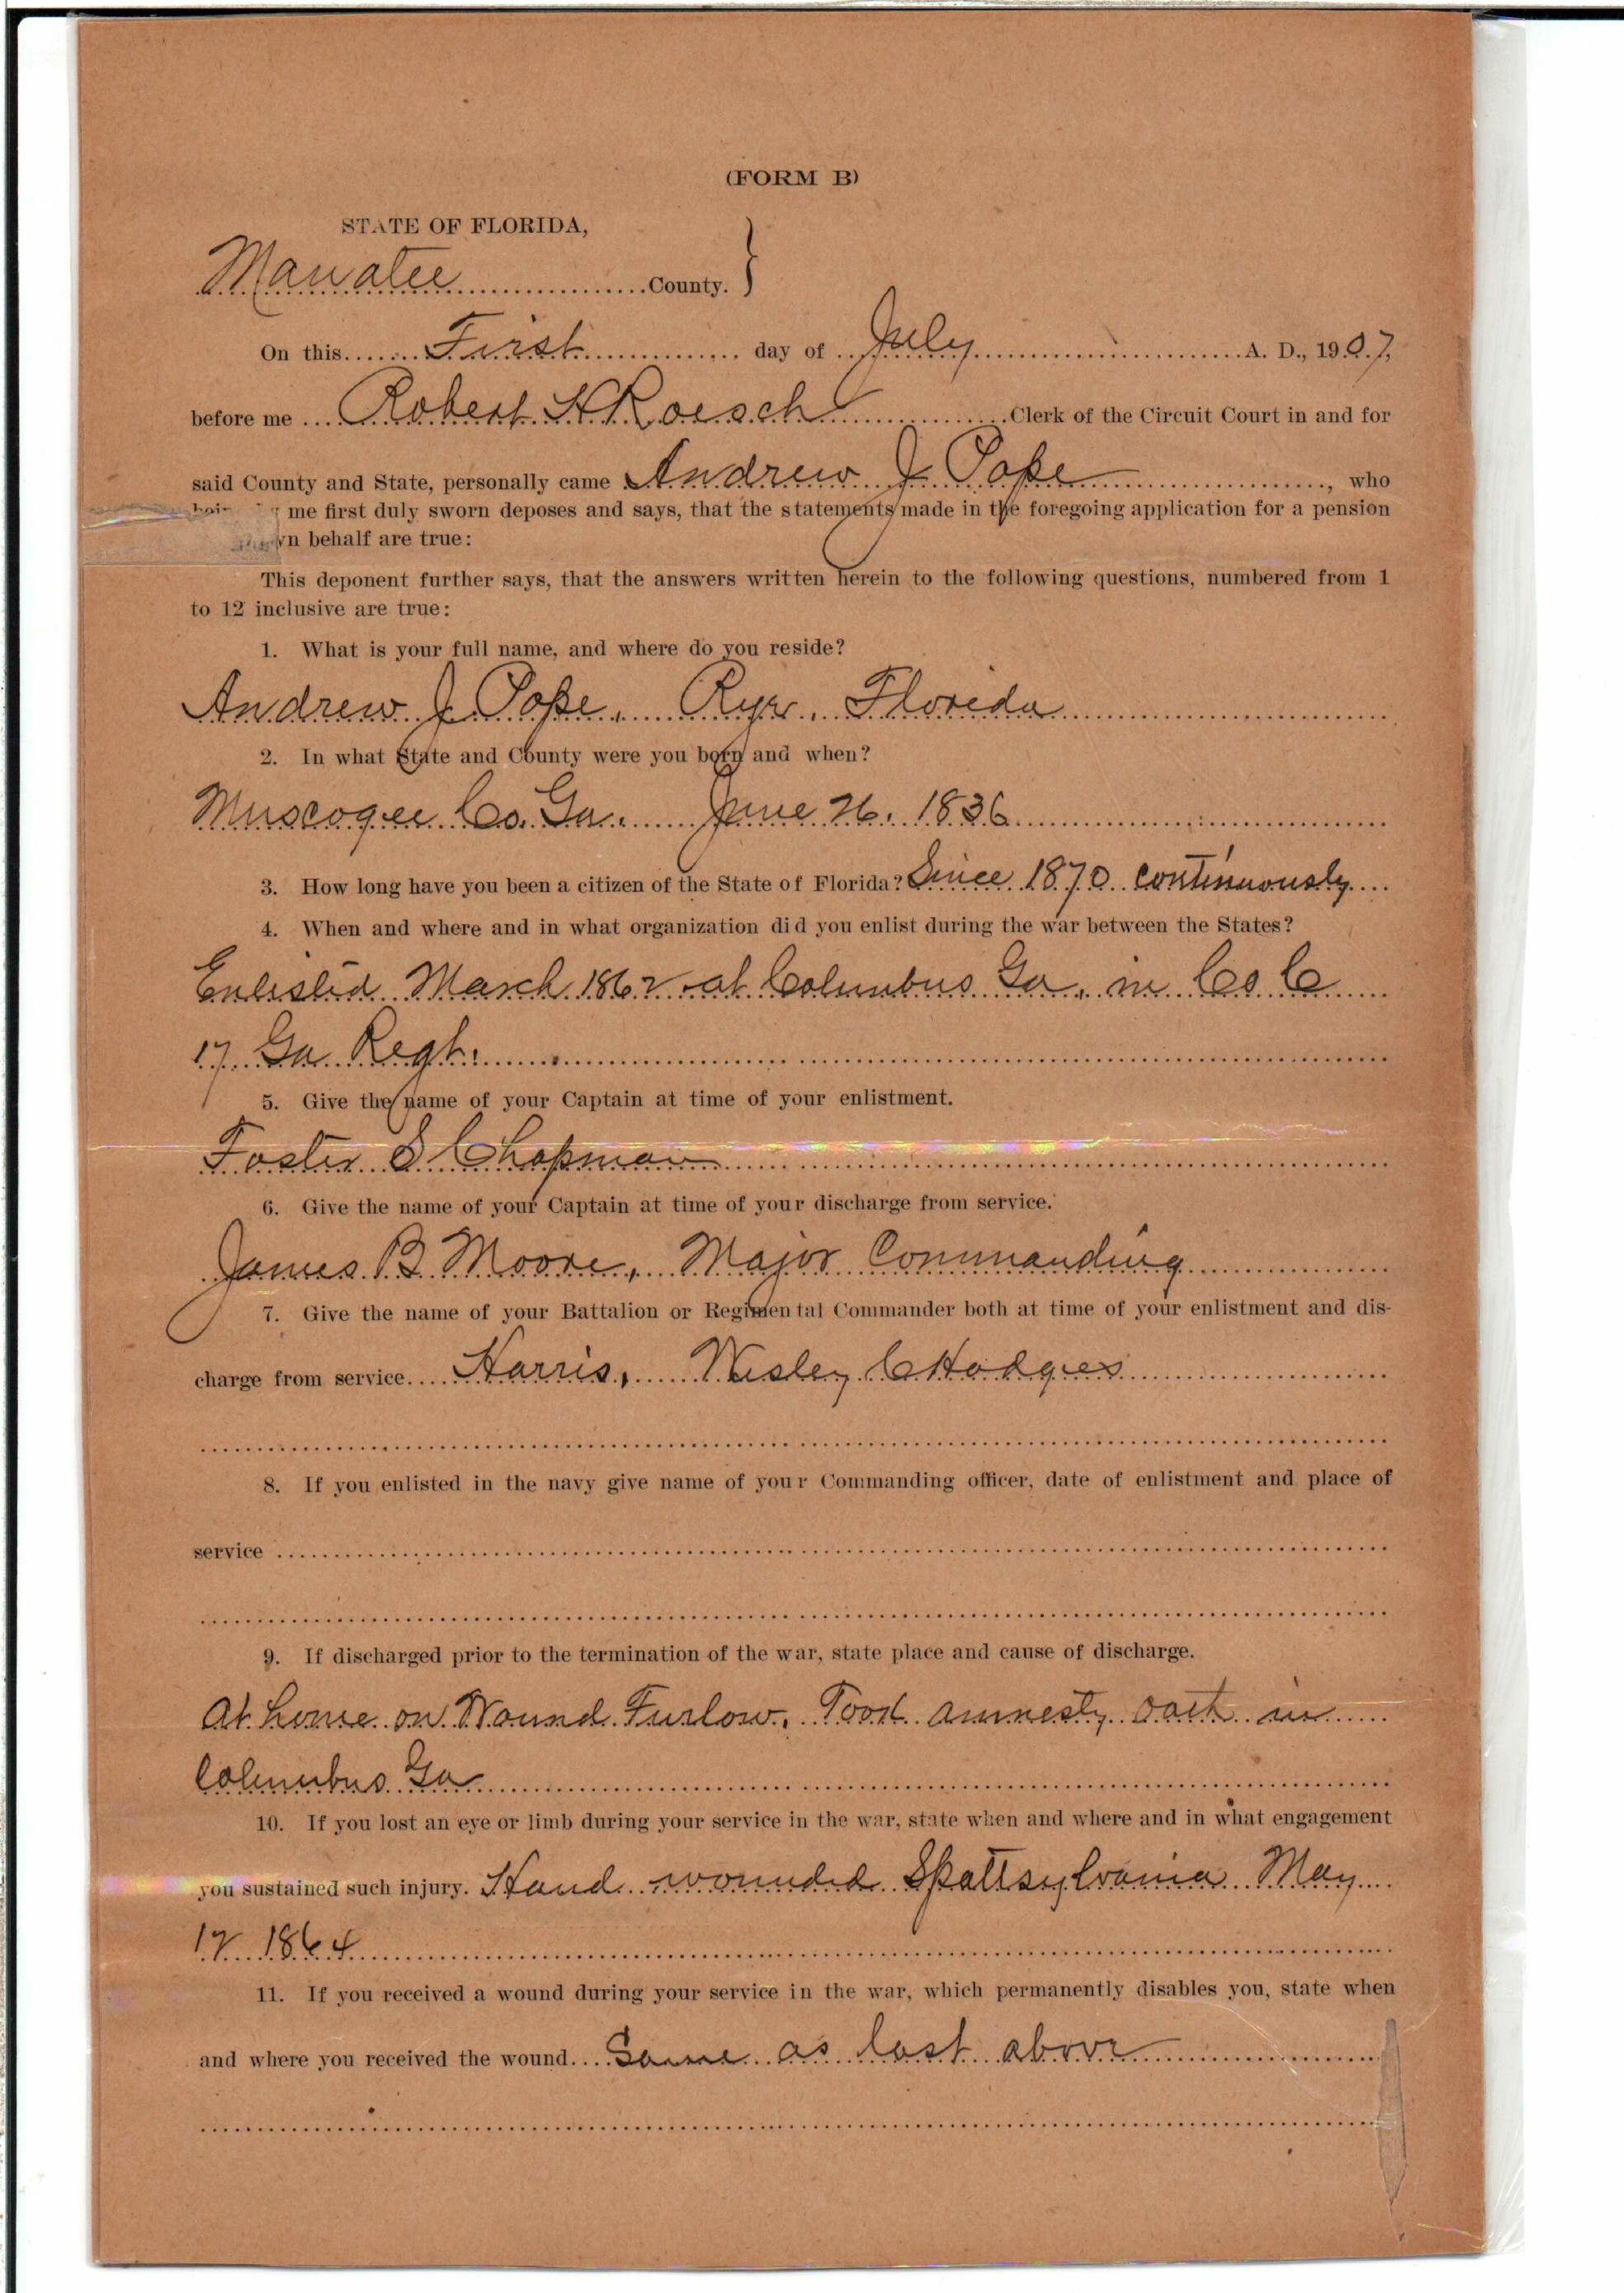 (FORM B)
STATE OF FLORIDA,
Manatee County.
On this First day of July A. D., 1907,
before me Robert H Roesch Clerk of the Circuit Court in and for
said County and State, personally came Andrew J. Pope, who
me first duly sworn deposes and says, that the statements made in the foregoing application for a pension
behalf are true:
This deponent further says, that the answers written herein to the following questions, numbered from 1
to 12 inclusive are true:
1. What is your full name, and where do you reside?
Andrew J. Pope, Rye, Florida
2. In what State and County were you born and when?
Muscogee Co. Ga. June 26. 1836
3. How long have you been a citizen of the State of Florida? Since 1870 continuously
4. When and where and in what organization did you enlist during the war between the States?
Enlisted March 1862 at Columbus Ga. in Co C
17 Ga Regt.
5. Give the name of your Captain at time of your enlistment.
Foster S Chapman
6. Give the name of your Captain at time of your discharge from service.
James B Moore, Major Commanding
7. Give the name of your Battalion or Regimental Commander both at time of your enlistment and dis-
charge from service. Harris, Wesley C Hodges
8. If you enlisted in the navy give name of your Commanding officer, date of enlistment and place of
service
9. If discharged prior to the termination of the war, state place and cause of discharge.
At home on Wound Furlow. Took amnesty oath in
Columbus Ga
10. If you lost an eye or limb during your service in the war, state when and where and in what engagement
you sustained such injury. Hand wounded Spattsylvania May
12 1864
11. If you received a wound during your service in the war, which permanently disables you, state when
and where you received the wound. Same as last above